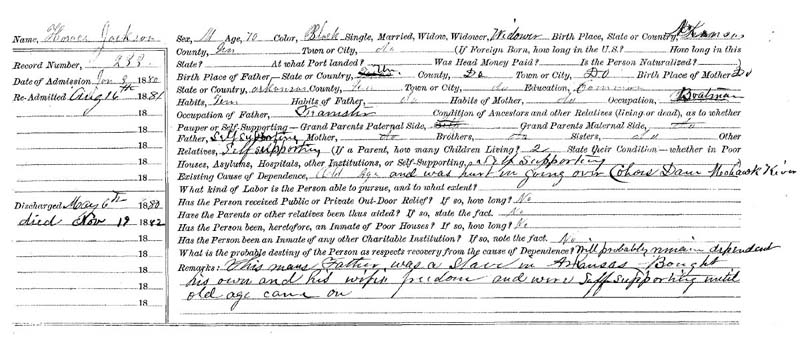 Name, Horace Jackson
Record Number, 233
Date of Admission Jan 3 1880
Re-Admitted Aug 16th 1881
18
18
18
18
18
18
Discharged May 6th 1880
died Nov 19 1882
18
18
18
18
18
Sex, M Age, 70 Color, Black Single, Married, Widow, Widower, Widower Birth Place, State or Country, Arkansas
County, Town or City, do (If Foreign Born, how long in the U.S.? How long in this
State? At what Port landed? Was Head Money Paid? Is the Person Naturalized?
Birth Place of Father,—State or Country, County, Do Town or City, Do Birth Place of Mother Do
State or Country, Arkansas County, Town or City, do Education, Common
Habits, Tem Habits of Father, do Habits of Mother, do Occupation, Boatman
Occupation of Father, Condition of Ancestors and other Relatives (living or dead), as to whether
Pauper or Self-Supporting—Grand Parents Paternal Side, Grand Parents Maternal Side, do
Father, Self Supporting Mother, do Brothers, do Sisters, do Other
Relatives, Self supporting (If a Parent, how many Children Living? 2 State their Condition—whether in Poor
Houses, Asylums, Hospitals, other Institutions, or Self-Supporting, Self Supporting
Existing Cause of Dependence, Old Age and was hurt in going over Cohoes Dam Mohawk River
What kind of Labor is the Person able to pursue, and to what extent?
Has the Person received Public or Private Out-Door Relief? If so, how long? No
Have the Parents or other relatives been thus aided? If so, state the fact. No
Has the Person been, heretofore, an Inmate of Poor Houses? If so, how long?
Has the Person been an Inmate of any other Charitable Institution? If so, note the fact. No
What is the probable destiny of the Person as respects recovery from the cause of Dependence? Will probably remain dependent
Remarks: This mans Father was a Slave in Arkansas Bought
his own and his wifes freedom and were self supporting until
old age came on